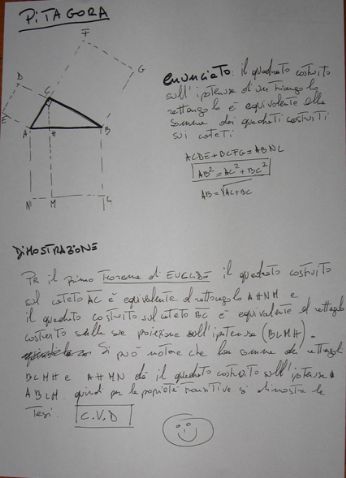 PITAGORA
enunciato: il quadrato costruito
sull'ipotenusa di un triangolo
rettangolo è equivalente alla
somma dei quadrati costruiti
sui cateti
F
D
G
C
E
A
B
N
M
L
ACDE + BCFG = ABNL
AB² = AC² + BC²
AB = √AC+BC
DIMOSTRAZIONE
Per il primo Teorema di EUCLIDE il quadrato costruito
sul cateto AC è equivalente al rettangolo AHNM e
il quadrato costruito sul cateto BC è equivalente al rettangolo
costruito sulla sua proiezione sull'ipotenusa (BLMH).
Si può notare che la somma dei rettangoli
BLMH e AHMN dà il quadrato costruito sull'ipotenusa
ABLM quindi per la proprietà transitiva si dimostra la
tesi. C.V.D